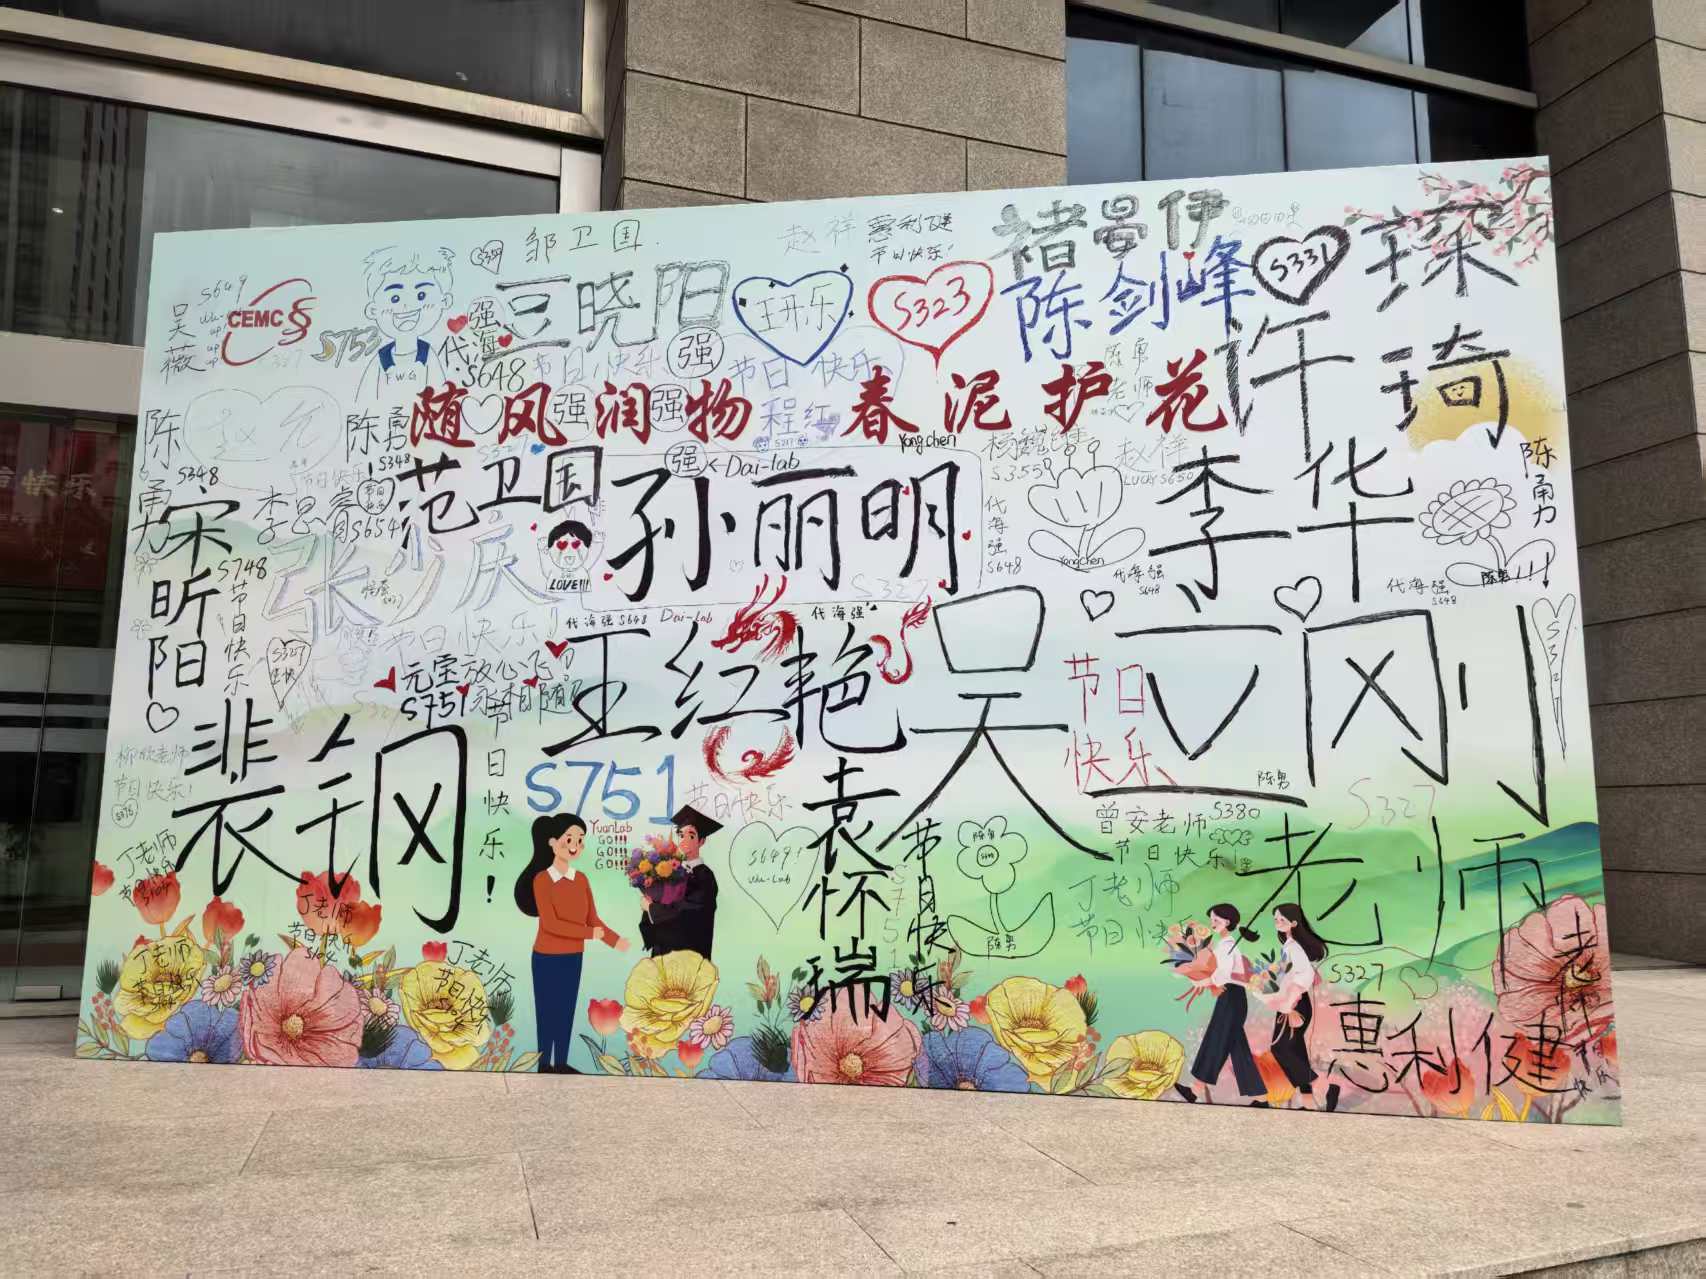 邹卫国
赵祥
惠利健
节日快乐!
褚晏伊
S649
吴薇
CEMC
S753
FWG
强
代海强
S648
豆晓阳
王开乐
S323
陈剑峰
S331
琛
许琦
节日快乐
强
节日快乐
随风润物 春泥护花
强
强
程红
陈勇
老师
赵允
节日快乐
陈勇
S348
陈勇
S348
宋昕阳
S654
范卫国
强<Dai-lab
Yongchen
孙丽明
S327
赵祥
LUCKY S650
代海强
S648
Yongchen
李华
代海强
S648
陈勇
代海强
S648
陈勇!!!
张少庆
LOVE!!!
S748
节日快乐
节日快乐!
代海强 S648 Dai-Lab
代海强
S327
元宝放心飞
S751永相随
王红艳
吴立刚
老师
节日
快乐
S327
裴钢
节日快乐!
柳欣老师
节日快乐!
S751
YuanLab
GO!!!
GO!!!
GO!!!
节日快乐
S649!
Wu-Lab
袁怀瑞
节日快乐
S751
陈勇
陈勇
陈勇
曾安老师 S380
节日快乐!
S327
丁老师
节日快乐
丁老师
节日快乐
S164
丁老师
节日快乐
S164
丁老师
节日快乐
丁老师
节日快乐
S327
惠利健
老师
节日
快乐